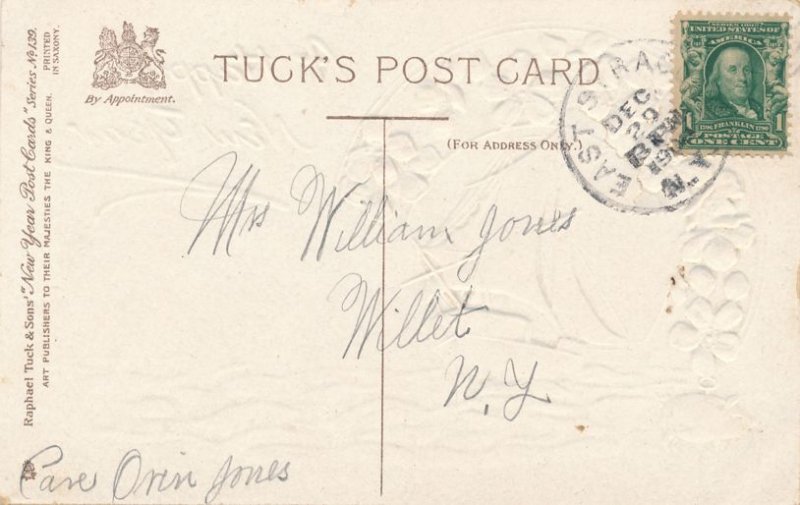 TUCK'S POST CARD
By Appointment.
(FOR ADDRESS ONLY.)
Raphael Tuck & Sons' "New Year Post Cards" Series Nº 139.
ART PUBLISHERS TO THEIR MAJESTIES THE KING & QUEEN.
PRINTED
IN SAXONY.
UNITED STATES OF
AMERICA
1 FRANKLIN 1
POSTAGE
ONE CENT
EAST
DEC
N.Y.
Mrs William Jones
Willet
N.Y
Care Orin Jones